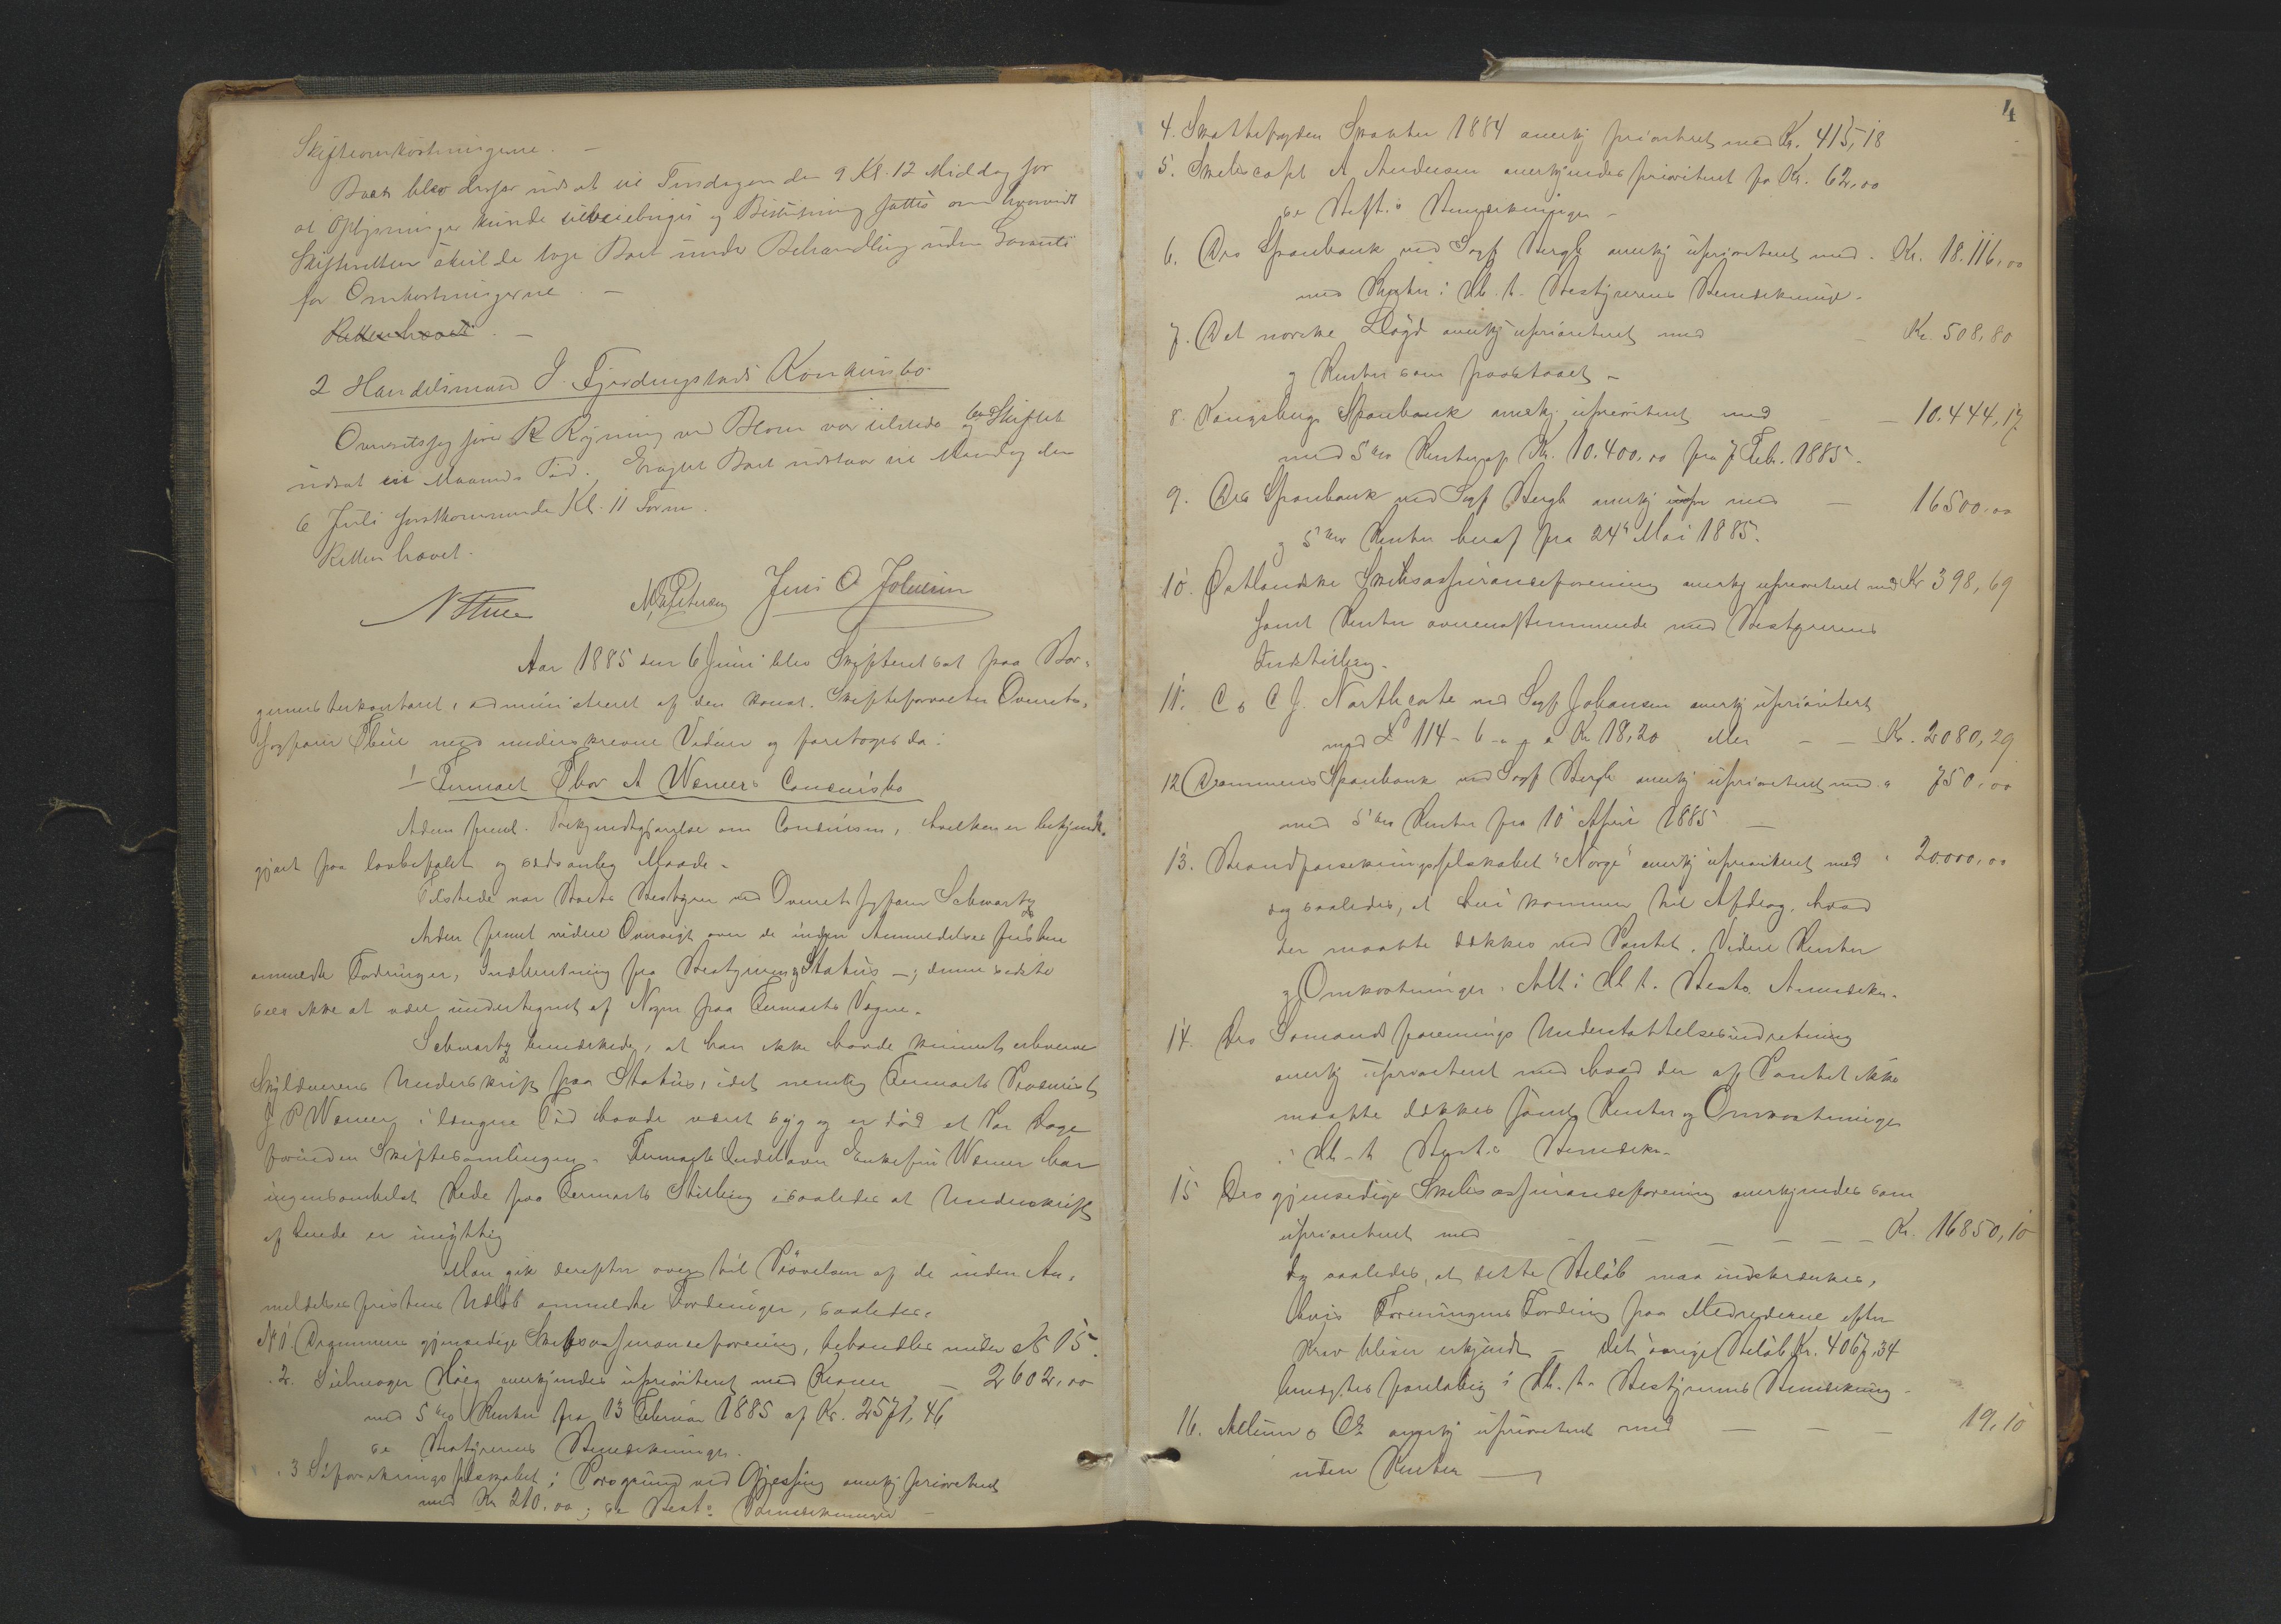 Skifteomkostningerne. —
Boets blev derfor udsat til Tirsdagen den 9 Kl. 12 Middag for
at Oplysninger kunde tilveiebringes og Beslutning fattes om hvorvidt
Skifteretten skulde tage Boet under Behandling uden Garanti
for Omkostningerne. —
Retten hævet. —
2 Handelsmand J. Fjerdingstads Konkursbo.
Overretssagfører R Ryning ved Blom var tilstede og begj. Skiftet
udsat en Maaneds Tid. Eragtet Boet udstaar til Mandag den
6 Juli førstkommende Kl. 11 Form.
Retten hævet.
N Thue Jens O Johnsen
Aar 1885 den 6 Juni blev Skifteret sat paa Bor-
germesterkontoret, administreret af den konst. Skifteforvalter Overrets-
sagfører Thue med underskrevne Vidner og foretoges da:
1 Firmaet Thor A Werners Concursbo
Adcm freml. Bekjendtgjørelse om Concursen, hvilken er bekjendt-
gjort paa lovbefalet og sædvanlig Maade.
Tilstede var Boets Bestyrer ved Overretssagfører Schwartz
Adcm freml videre Oversigt over de inden Anmeldelses fristen
anmeldte Fordringer, Indberetning fra Bestyreren og Status —; denne sidste
sees ikke at være undertegnet af Nogen paa Firmaets Vegne.
Schwartz bemærkede, at han ikke havde kunnet erhverve
Skyldnerens Underskrift paa Status, idet nemlig Firmaets Procurist
J P Werner i længere Tid havde været syg og er død et Par Dage
forinden Skiftesamlingen. Firmaets Indehaver Enkefru Werner har
ingensomhelst Rede paa Firmaets Stilling saaledes at Underskrift
af hende er unyttig
Man gik derefter over til Prøvelsen af de inden An-
meldelses fristens Udløb anmeldte Fordringer, saaledes:
No 1. Drammens gjensidige Skibsassuranceforening, behandles under No 15.
" 2. Seilmager Høeg anerkjendes uprioriteret med Kroner — 2602,00
med 5 % Renter fra 13 Februar 1885 af Kr. 2571,46
se Bestyrerens Bemærkninger.
" 3 Søforsikringsselskabet i Porsgrund ved Gjessing anerkj prioriteret
med Kr 210,00; se Best.s Bemærkninger —
4
4. Skattefogden Skatter 1884 anerkj prioriteret med Kr. 415,18
5. Skibscapt A Andersen anerkjendes prioriteret for Kr. 62,00
se Best.s Bemærkninger —
6. Drs Sparebank ved Sagf Bergh anerkj uprioriteret med. Kr. 18.116,00
med Renter i Hh. t. Bestyrerens Bemærkning.
7. Det norske Lloyd anerkj uprioriteret med — Kr. 508,80
og Renter som paastaaet —
8. Kongsbergs Sparebank anerkj. uprioriteret med — — 10.444,17
med 5 % Renter af Kr. 10.400,00 fra 7 Feb. 1885.
9. Drs Sparebank ved Sagf Bergh anerkj upr med — 16500,00
og 5 % Renter heraf fra 24de Mai 1885.
10. Østlandske Skibsassuranceforening anerkj uprioriteret med Kr 398,69
samt Renter overensstemmende med Bestyrerens
Indstilling.
11. C & C J. Northcote ved Sagf Johansen anerkj uprioritert
med £ 114 - 6 - " a Kr 18,20 eller — — Kr. 2080,29
12 Drammens Sparebank ved Sagf Bergh anerkj uprioriteret med " 750,00
med 5 % Renter fra 10 April 1885 —
13. Brandforsikringsselskabet "Norge" anerkj uprioriteret med " 20.000,00
dog saaledes, at heri kommer til Afdrag, hvad
der maatte dækkes ved Pantet. Videre Renter
og Omkostninger. Alt i Hh t. Bests. Anmærkn.
14. Drs Sømandsforenings Understøttelsesindretning
anerkj uprioriteret med hvad der af Pantet ikke
maatte dækkes samt Renter og Omkostninger
i Hh. t. Best.s Bemærkn.
15 Drs gjensidige Skibsassuranceforening anerkjendes som
uprioriteret med — — — — — Kr. 16850,10
dog saaledes, at dette Beløb maa indskrænkes,
hvis Foreningens Fordring paa Medrederne efter
Krav bliver erkjendt — Det øvrige Beløb Kr. 4067,34
benegtes foreløbig i Hh. t. Bestyrerens Bemærkning —
16. Melum & Co anerkj uprioriteret med — — — 19,10
uden Renter —